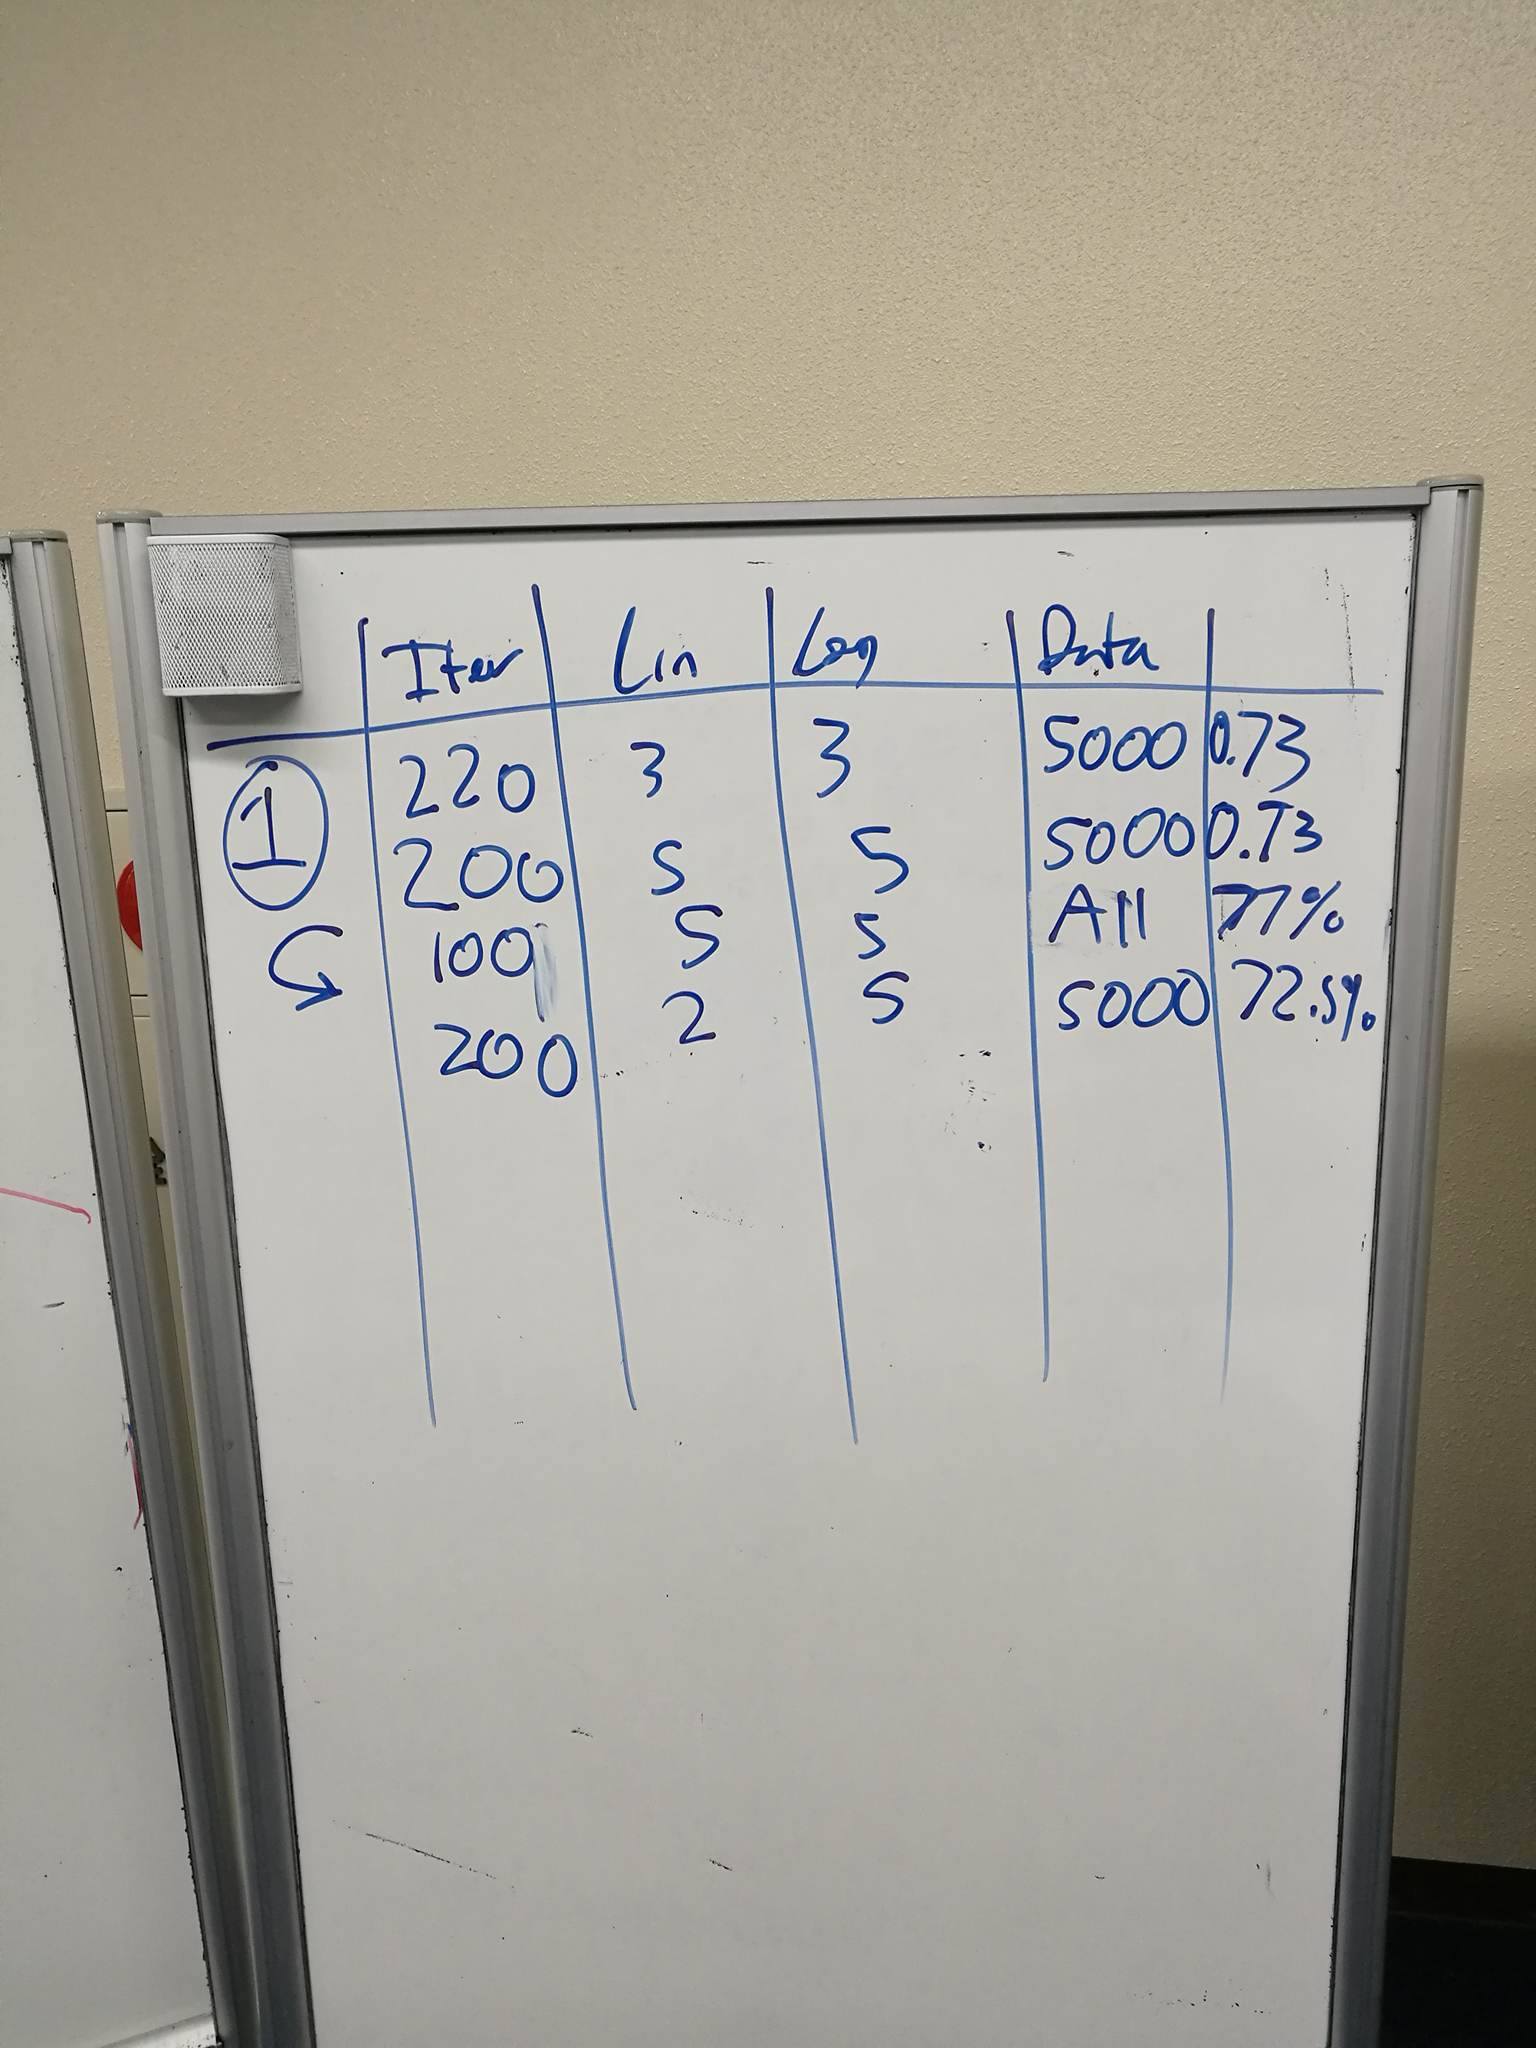 Iter Lin Len Data
1 220 3 3 5000 0.73
200 5 5 5000 0.73
100 5 5 All 77%
200 2 5 5000 72.5%